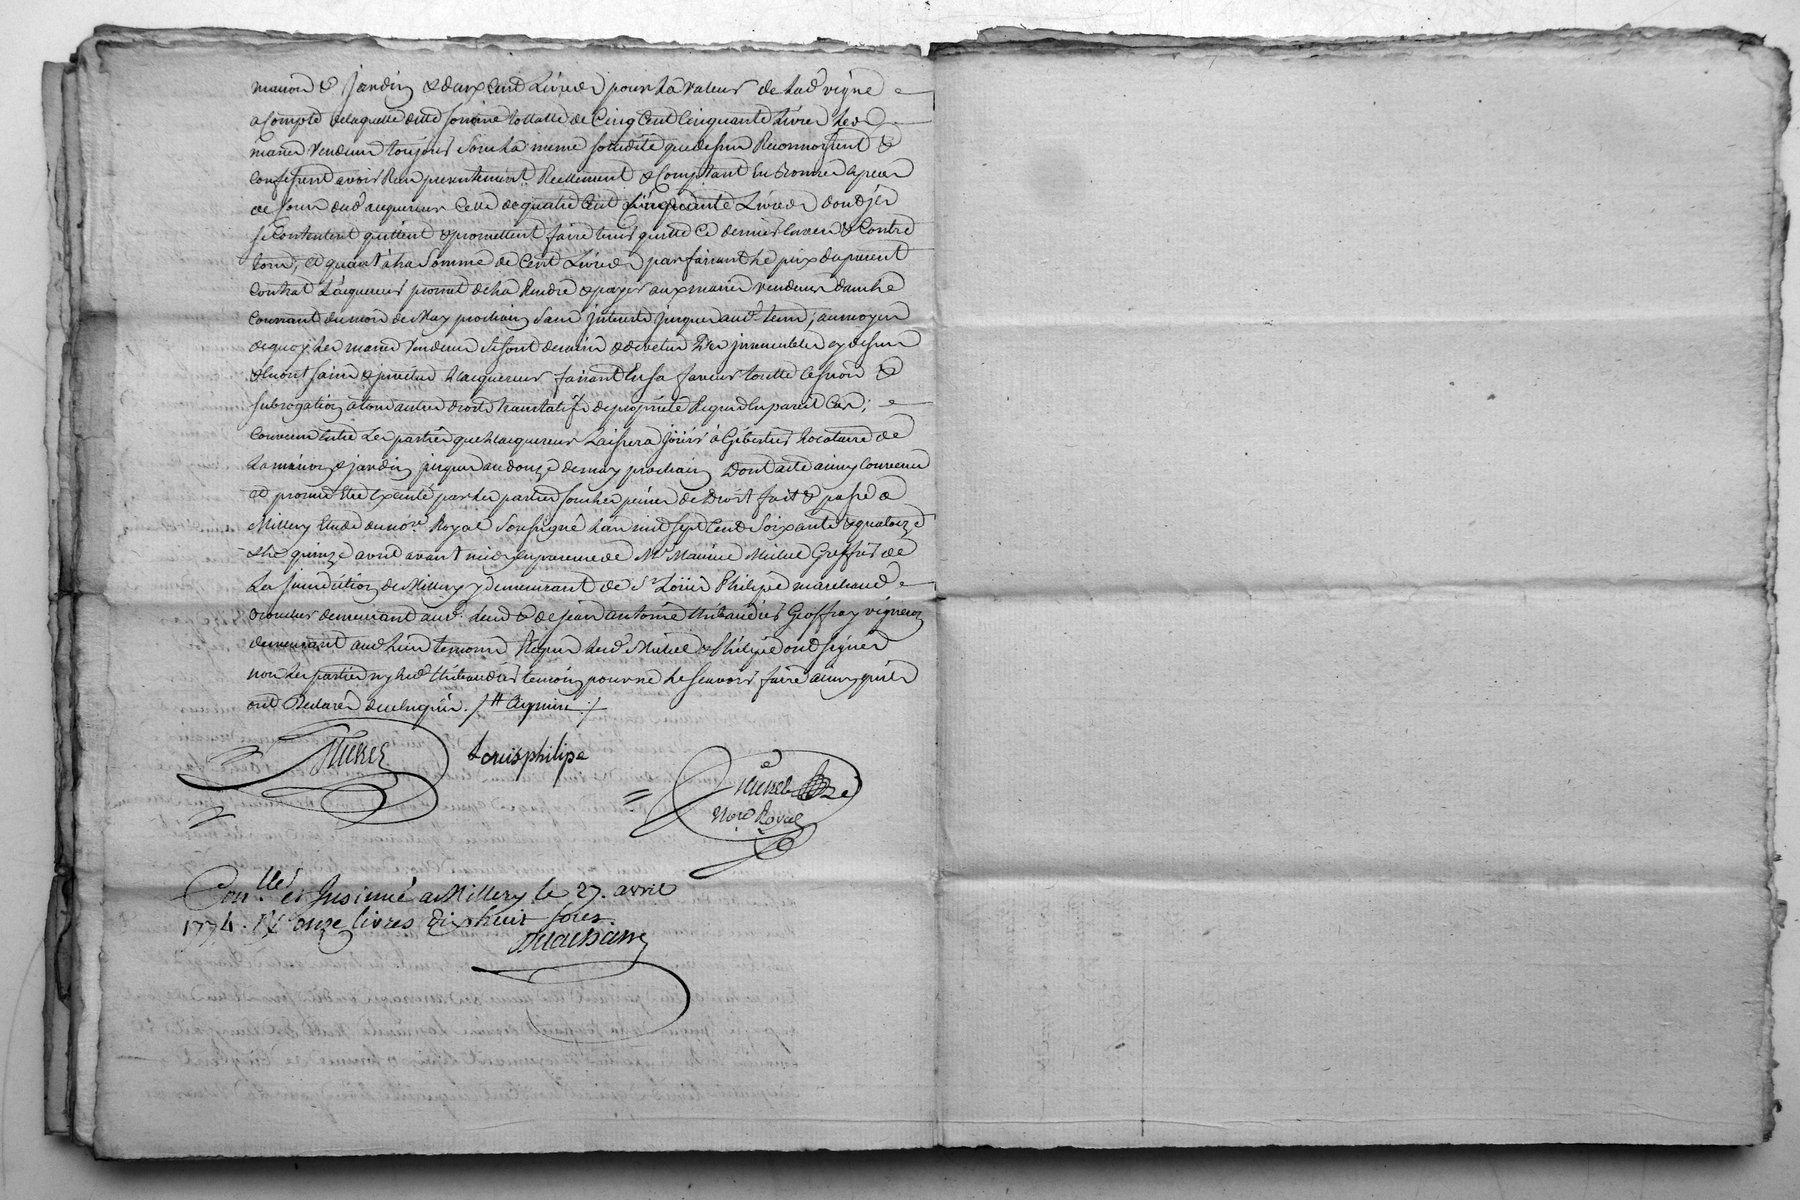 maison & jardin & deux cent Livres pour La valeur de Lad vigne
a Compte delaquelle ditte somme tottalle de Cinq Cent Cinquante Livres Les
mariés vendeurs toujours sous La même solidité que dessus Reconnoissent &
confessent avoir Reçu presentement Reellement & Comptant En
ce jour dud acquereur Celle de quatre Cent Cinquante Livres dont
se Contentent quittent & promettent faire tenir quitte Ce dernier Envers & Contre
tous, Et quant à La Somme de Cent Livres parfaisant Le prix du present
Contrat L'acquereur promet de La Rendre & payer aux mariés vendeurs dans Le
Courant du mois de May prochain Sans Interets jusques aud terme; au moyen
dequoy Les mariés vendeurs se sont demis & devetus Des immeubles cy dessus
& En ont saisi & investu L'acquereur faisant En sa faveur toutte Cession &
subrogation à tous autres droits translatifs de proprieté Requis En pareil Cas;
Convenu Entre Les parties que L'acquereur Laissera jouir à Gibertier Locataire de
La maison & jardin jusques au donze de may prochain Dont acte ainsy Convenu
Et promis Etre Executé par Les parties sous Les peines de Droit fait & passé à
Millery Etude du nore Royal Soussigné L'an mil sept Cent Soixante & quatorze
& Le quinze avril avant midy En presence de Me Maurice Michel Greffier de
La Juridiction de Millery y demeurant de Sr Loüis Philipe marchand
demeurant aud. Lieu & de Jean antoine thibaudier Geoffray vigneron
demeurant aud Lieu temoins Requis Lesd Michel & Philipe ont signés
non Les parties ny Led thibaudier temoin pour ne Le Scavoir faire ainsy qu'ils
ont Declarés & Enquis.
Michel
Louis philipe
nore Royal
Conllé et Insinué a Millery le 27. avril
1774. R onze livres dix huit sous.